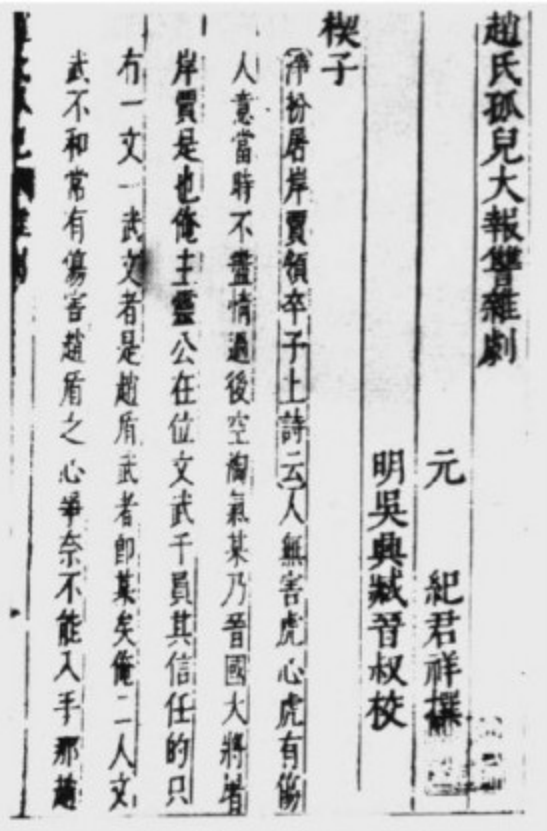 趙氏孤兒大報讐雜劇
元 紀君祥撰
明吳興臧晉叔校
楔子
淨扮屠岸賈領卒子上詩云人無害虎心虎有傷
人意當時不盡情過後空淘氣某乃晉國大將屠
岸賈是也俺主靈公在位文武千員其信任的只
有一文一武文者是趙盾武者即某矣俺二人文
武不和常有傷害趙盾之心爭奈不能入手那趙